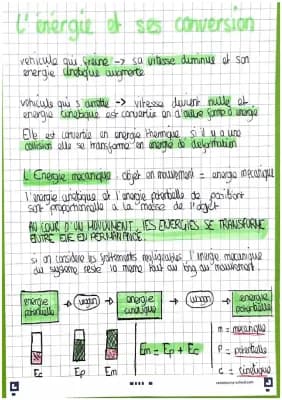 L'énergie et ses conversion
vehicule qui freine -> sa vitesse diminue et son
energie cinétique augmente
vehicule qui s'arrête -> vitesse devient nulle et
energie cinetique est convertie en d'autre forme d'energie
Elle est convertie en energie thermique si il y a une
collision elle se transforme en energie de deformation
L'Energie mecanique : objet en mouvement = energie mecanique
l'energie cinétique et l'energie potentielle de position
sont proportionnelle a la masse de l'objet
AU COUR D'UN MOUVEMENT, LES ENERGIES SE TRANSFORME
ENTRE ELLE EN PERMANENCE.
si on considere les frottements negligeables, l'energie mecanique
du systeme reste la meme tout au long du mouvement
energie potentielle -> wagon -> energie cinetique -> wagon -> energie potentielle
Em = Ep + Ec
m = mecanique
P = potentielle
c = cinetique
Ec Ep Em